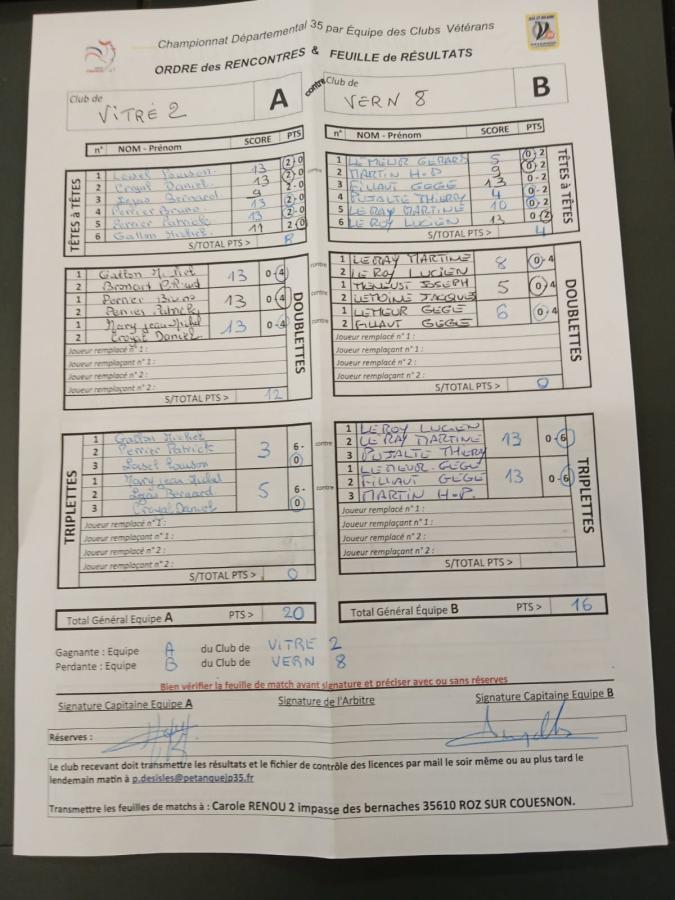 Championnat Départemental 35 par Équipe des Clubs Vétérans
ORDRE des RENCONTRES & FEUILLE de RÉSULTATS
Club de VITRÉ 2 A contre Club de VERN 8 B
n° NOM - Prénom SCORE PTS n° NOM - Prénom SCORE PTS
TÊTES à TÊTES
1 13 2-0 contre 1 LEMEUR GERARD 5 0-2
2 Croyal Daniel 13 2-0 2 MARTIN H-P 9 0-2
3 Legas Bernard 9 2-0 3 FILLAUT GEGE 13 0-2
4 Perrier Bruno 13 2-0 4 PUJALTE THIERY 4 0-2
5 Perrier Patrick 13 2-0 5 LE RAY MARTINE 10 0-2
6 Gallon Michel 11 2-0 6 LE ROY LUCIEN 13 0-2
S/TOTAL PTS > 8 S/TOTAL PTS > 4
TÊTES à TÊTES
DOUBLETTES
1 Gallon Michel 13 0-4 contre 1 LE RAY MARTINE 8 0-4
2 2 LE ROY LUCIEN
1 Perrier Bruno 13 0-4 contre 1 MENEUST JOSEPH 5 0-4
2 Perrier Patrick 2 LEMOINE JACQUES
1 Mary Jean-Michel 13 0-4 contre 1 LEMEUR GEGE 6 0-4
2 Croyal Daniel 2 FILLAUT GEGE
Joueur remplacé n° 1 : Joueur remplacé n° 1 :
Joueur remplaçant n° 1 : Joueur remplaçant n° 1 :
Joueur remplacé n° 2 : Joueur remplacé n° 2 :
Joueur remplaçant n° 2 : Joueur remplaçant n° 2 :
S/TOTAL PTS > 12 S/TOTAL PTS > 0
DOUBLETTES
TRIPLETTES
1 Gallon Michel 3 6-0 contre 1 LE ROY LUCIEN 13 0-6
2 Perrier Patrick 2 LE RAY MARTINE
3 3 PUJALTE THIERY
1 Mary Jean Michel 5 6-0 contre 1 LEMEUR GEGE 13 0-6
2 Legas Bernard 2 FILLAUT GEGE
3 Croyal Daniel 3 MARTIN H-P.
Joueur remplacé n° 1 : Joueur remplacé n° 1 :
Joueur remplaçant n° 1 : Joueur remplaçant n° 1 :
Joueur remplacé n° 2 : Joueur remplacé n° 2 :
Joueur remplaçant n° 2 : Joueur remplaçant n° 2 :
S/TOTAL PTS > 0 S/TOTAL PTS >
TRIPLETTES
Total Général Equipe A PTS > 20 Total Général Équipe B PTS > 16
Gagnante : Equipe A du Club de VITRE 2
Perdante : Equipe B du Club de VERN 8
Bien vérifier la feuille de match avant signature et préciser avec ou sans réserves
Signature Capitaine Equipe A Signature de l'Arbitre Signature Capitaine Equipe B
Réserves :
Le club recevant doit transmettre les résultats et le fichier de contrôle des licences par mail le soir même ou au plus tard le
lendemain matin à p.desisles@petanquejp35.fr
Transmettre les feuilles de matchs à : Carole RENOU 2 impasse des bernaches 35610 ROZ SUR COUESNON.